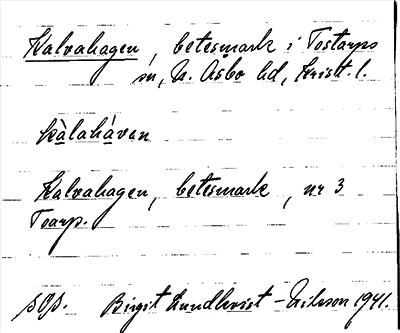 Kalvahagen, betesmark i Tostarps
sn, N. Åsbo hd, Krist. l.
kàlahávan
Kalvahagen, betesmark, nr 3
Toarp.
sOp. Birgit Lundkvist-Nilsson 1941.